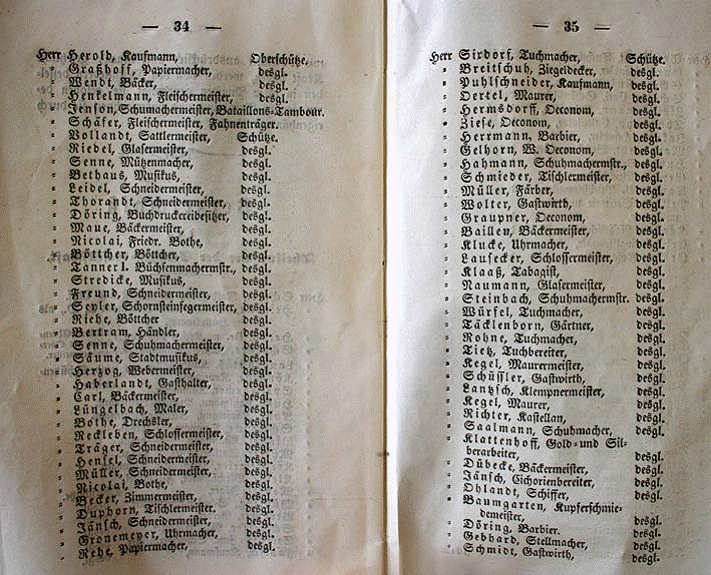 — 34 —
Herr Herold, Kaufmann, Oberschütze.
" Graßhoff, Papiermacher, desgl.
" Wendt, Bäcker, desgl.
" Henkelmann, Fleischermeister, desgl.
" Jenson, Schumachermeister, Bataillons-Tambour.
" Schäfer, Fleischermeister, Fahnenträger.
" Vollandt, Sattlermeister, Schütze.
" Riedel, Glasermeister, desgl.
" Senne, Mützenmacher, desgl.
" Bethaus, Musikus, desgl.
" Leidel, Schneidermeister, desgl.
" Thorandt, Schneidermeister, desgl.
" Döring, Buchdruckereibesitzer, desgl.
" Maue, Bäckermeister, desgl.
" Nicolai, Friedr. Bothe, desgl.
" Böttcher, Böttcher, desgl.
" Tanner I. Büchsenmachermstr., desgl.
" Stredicke, Musikus, desgl.
" Freund, Schneidermeister, desgl.
" Seyler, Schornsteinfegermeister, desgl.
" Riehe, Böttcher desgl.
" Bertram, Händler, desgl.
" Senne, Schuhmachermeister, desgl.
" Säume, Stadtmusikus, desgl.
" Herzog, Webermeister, desgl.
" Haberlandt, Gasthalter, desgl.
" Carl, Bäckermeister, desgl.
" Lüngelbach, Maler, desgl.
" Bothe, Drechsler, desgl.
" Reckleben, Schlossermeister, desgl.
" Träger, Schneidermeister, desgl.
" Henkel, Schneidermeister, desgl.
" Müller, Schneidermeister, desgl.
" Nicolai, Bothe, desgl.
" Becker, Zimmermeister, desgl.
" Duphorn, Tischlermeister. desgl.
" Jänsch, Schneidermeister, desgl.
" Gronemeyer, Uhrmacher, desgl.
" Rehe, Papiermacher, desgl.
— 35 —
Herr Sixdorf, Tuchmacher, Schütze.
" Breitschuh, Ziegeldecker, desgl.
" Puhlschneider, Kaufmann, desgl.
" Oertel, Maurer, desgl.
" Hermsdorff, Oeconom, desgl.
" Ziese, Oeconom, desgl.
" Herrmann, Barbier, desgl.
" Gelhorn, W. Oeconom, desgl.
" Hahmann, Schuhmachermstr., desgl.
" Schmieder, Tischlermeister, desgl.
" Müller, Färber, desgl.
" Wolter, Gastwirth, desgl.
" Graupner, Oeconom, desgl.
" Bailleu, Bäckermeister, desgl.
" Klucke, Uhrmacher, desgl.
" Laufecker, Schlossermeister, desgl.
" Klaaß, Tabagist, desgl.
" Naumann, Glasermeister, desgl.
" Steinbach, Schuhmachermstr. desgl.
" Würfel, Tuchmacher, desgl.
" Täcklenborn, Gärtner, desgl.
" Rohne, Tuchmacher, desgl.
" Tietz, Tuchbereiter, desgl.
" Kegel, Maurermeister, desgl.
" Schüffler, Gastwirth, desgl.
" Lantzsch, Klempnermeister, desgl.
" Kegel, Maurer, desgl.
" Richter, Kastellan, desgl.
" Saalmann, Schuhmacher, desgl.
" Klattenhoff, Gold- und Sil-
berarbeiter, desgl.
" Dübecke, Bäckermeister, desgl.
" Jänsch, Cichorienbereiter, desgl.
" Ohlandt, Schiffer, desgl.
" Baumgarten, Kupferschmie-
demeister, desgl.
" Döring, Barbier. desgl.
" Gebhard, Stellmacher, desgl.
" Schmidt, Gastwirth, desgl.